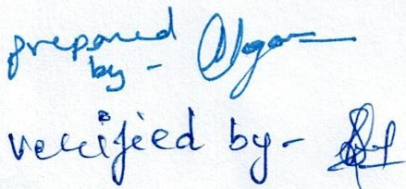 prepared
by -
verified by -